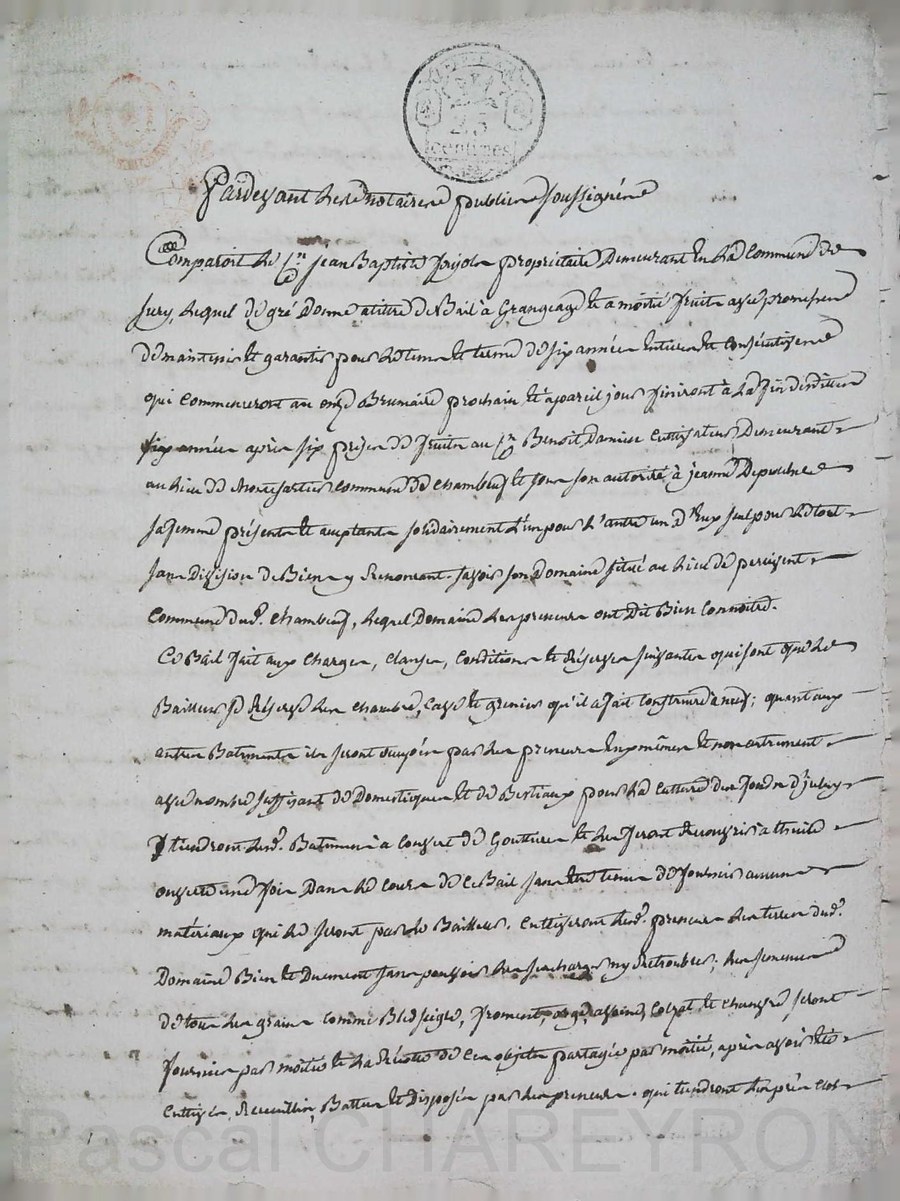 25
centimes
Pardevant les notaires publics soussignés
Comparoit le Cn Jean Baptiste propriétaire demeurant en la commune de
Jury, lequel de gré donne a titre de Bail à Grangeage et a moitié fruits avec promesse
de maintenir et garantir pour le tems et terme de six années entieres et consécutives
qui commenceront au onze Brumaire prochain et à pareil jour finiront à la fin desdittes
six années après six prises de fruits au Cn Benoit Damien cultivateur demeurant
au lieu de commune de Chambeuf et sous son autorité à jeanne
sa femme présents et acceptants solidairement l'un pour l'autre un d'eux seul pour le tout
sans division de Biens y renonceant. savoir son Domaine situé au lieu de
commune dud. Chambeuf, lequel Domaine les preneurs ont dit bien connoitre.
Ce Bail fait aux charges, clauses, conditions et réserves suivantes qui sont que le
Bailleur se réserve les chambre, cave et grenier qu'il a fait construire à neuf; quant aux
autres Batiments ils seront occupés par les preneurs eux mêmes et non autrement
avec nombre suffisant de Domestiques et de Bestiaux pour la culture des fonds d'iceluy
tiendront lesd. Batiments à couvert de Gouttieres et les feront recouvrir à thuile
ouverte une fois dans le cours de ce Bail sans être tenus de fournir aucuns
matériaux qui le seront par le Bailleur. Cultiveront lesd. preneurs les terres dud.
Domaine Bien et Duement sans pouvoir les surcharger ny retroubler, les semences
de tous les grains comme Bled seigle, froment, orge, avoine, Colzat et chanvre seront
fournies par moitié et la récolte de ces objets partagée par moitié, après avoir été
cultivés, recueillis, Battus et disposés par les preneurs. qui tiendront les prés clos
Pascal CHAREYRON